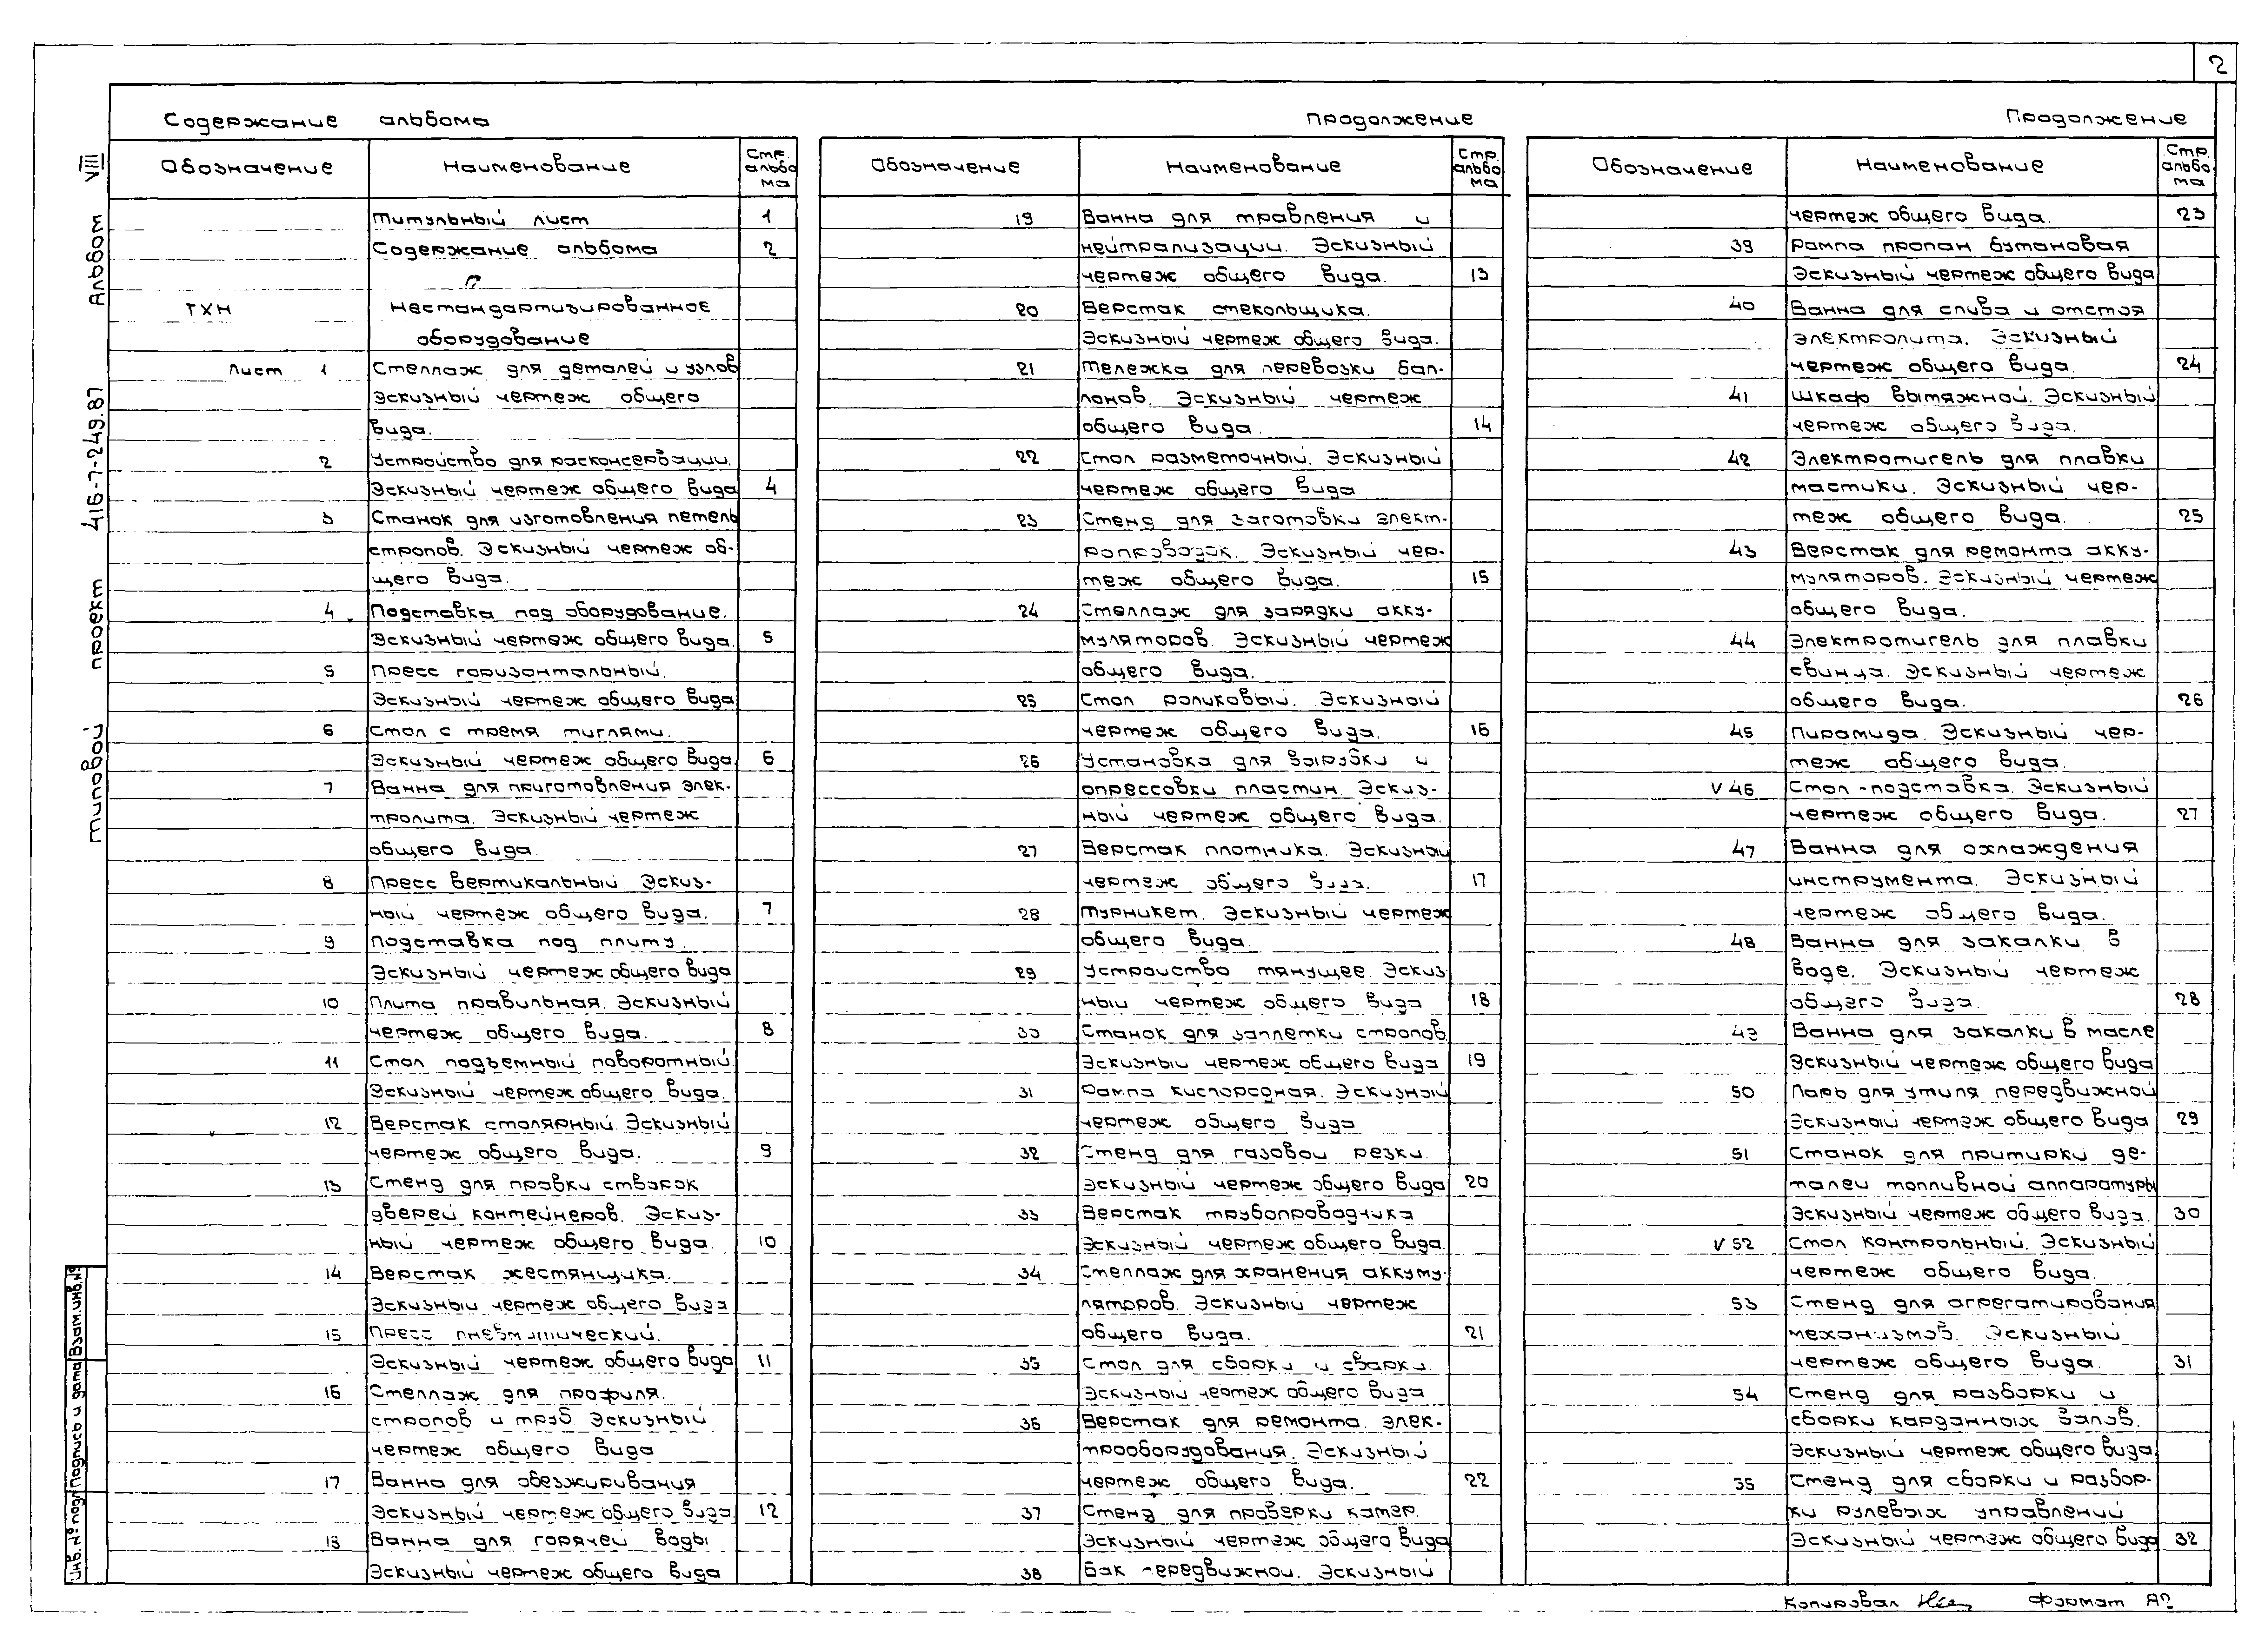 2
Содержание альбома
Обозначение Наименование Стр. альбо ма
Титульный лист 1
Содержание альбома 2
ТХН Нестандартизированное
оборудование
Лист 1 Стеллаж для деталей и узлов
Эскизный чертеж общего
вида.
2 Устройство для расконсервации.
Эскизный чертеж общего вида 4
3 Станок для изготовления петель
стропов. Эскизный чертеж об-
щего вида.
4 Подставка под оборудование.
Эскизный чертеж общего вида. 5
5 Пресс горизонтальный.
Эскизный чертеж общего вида
6 Стол с тремя тиглями.
Эскизный чертеж общего вида 6
7 Ванна для приготовления элек-
тролита. Эскизный чертеж
общего вида.
8 Пресс вертикальный Эскиз-
ный чертеж общего вида. 7
9 Подставка под плиту.
Эскизный чертеж общего вида
10 Плита правильная. Эскизный
чертеж общего вида. 8
11 Стол подъемный поворотный.
Эскизный чертеж общего вида.
12 Верстак столярный. Эскизный
чертеж общего вида. 9
13 Стенд для правки створок
дверей контейнеров. Эскиз-
ный чертеж общего вида. 10
14 Верстак жестянщика.
Эскизный чертеж общего вида
15 Пресс пневматический.
Эскизный чертеж общего вида 11
16 Стеллаж для профиля.
стропов и труб. Эскизный
чертеж общего вида
17 Ванна для обезжиривания
Эскизный чертеж общего вида. 12
18 Ванна для горячей воды
Эскизный чертеж общего вида
Продолжение
Обозначение Наименование Стр. альбо ма
19 Ванна для травления и
нейтрализации. Эскизный
чертеж общего вида. 13
20 Верстак стекольщика.
Эскизный чертеж общего вида.
21 Тележка для перевозки бал-
лонов. Эскизный чертеж
общего вида. 14
22 Стол разметочный. Эскизный
чертеж общего вида
23 Стенд для заготовки элект-
ропроводок. Эскизный чер-
теж общего вида. 15
24 Стеллаж для зарядки акку-
муляторов. Эскизный чертеж
общего вида.
25 Стол роликовый. Эскизный
чертеж общего вида. 16
26 Установка для вырубки и
опрессовки пластин. Эскиз-
ный чертеж общего вида.
27 Верстак плотника. Эскизный
чертеж общего вида. 17
28 Турникет. Эскизный чертеж
общего вида.
29 Устройство тянущее. Эскиз
ный чертеж общего вида 18
30 Станок для заплетки стропов
Эскизный чертеж общего вида 19
31 Рампа кислородная. Эскизный
чертеж общего вида
32 Стенд для газовой резки.
Эскизный чертеж общего вида 20
33 Верстак трубопроводчика
Эскизный чертеж общего вида.
34 Стеллаж для хранения аккуму-
ляторов. Эскизный чертеж
общего вида. 21
35 Стол для сборки и сварки.
Эскизный чертеж общего вида
36 Верстак для ремонта элек-
трооборудования. Эскизный
чертеж общего вида. 22
37 Стенд для проверки камер.
Эскизный чертеж общего вида
38 Бак передвижной. Эскизный
Продолжение
Обозначение Наименование Стр. альбо ма
чертеж общего вида. 23
39 Рампа пропан бутановая
Эскизный чертеж общего вида
40 Ванна для слива и отстоя
электролита. Эскизный
чертеж общего вида. 24
41 Шкаф вытяжной. Эскизный
чертеж общего вида.
42 Электротигель для плавки
мастики. Эскизный чер-
теж общего вида. 25
43 Верстак для ремонта акку-
муляторов. Эскизный чертеж
общего вида.
44 Электротигель для плавки
свинца. Эскизный чертеж
общего вида. 26
45 Пирамида. Эскизный чер-
теж общего вида.
V 46 Стол-подставка. Эскизный
чертеж общего вида. 27
47 Ванна для охлаждения
инструмента. Эскизный
чертеж общего вида.
48 Ванна для закалки в
воде. Эскизный чертеж
общего вида. 28
49 Ванна для закалки в масле
Эскизный чертеж общего вида
50 Ларь для утиля передвижной
Эскизный чертеж общего вида 29
51 Станок для притирки де-
талей топливной аппаратуры
Эскизный чертеж общего вида. 30
V 52 Стол контрольный. Эскизный
чертеж общего вида.
53 Стенд для агрегатирования
механизмов. Эскизный
чертеж общего вида. 31
54 Стенд для разборки и
сборки карданных валов.
Эскизный чертеж общего вида
55 Стенд для сборки и разбор-
ки рулевых управлений
Эскизный чертеж общего вида 32
Типовой проект 416-7-249.87 Альбом VIII
Инв. № подл Подпись и дата Взам. инв. №
Копировал Формат А2